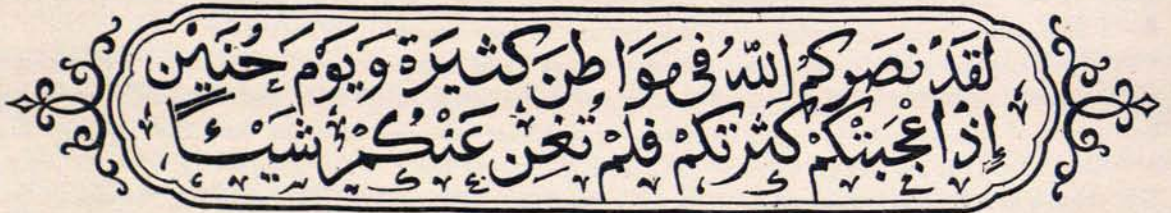 لَقَدْ نَصَرَكُمُ اللّٰهُ فِى مَوَاطِنَ كَثِيرَةٍ وَيَوْمَ حُنَيْنٍ
إِذْ أَعْجَبَتْكُمْ كَثْرَتُكُمْ فَلَمْ تُغْنِ عَنْكُمْ شَيْـًٔا